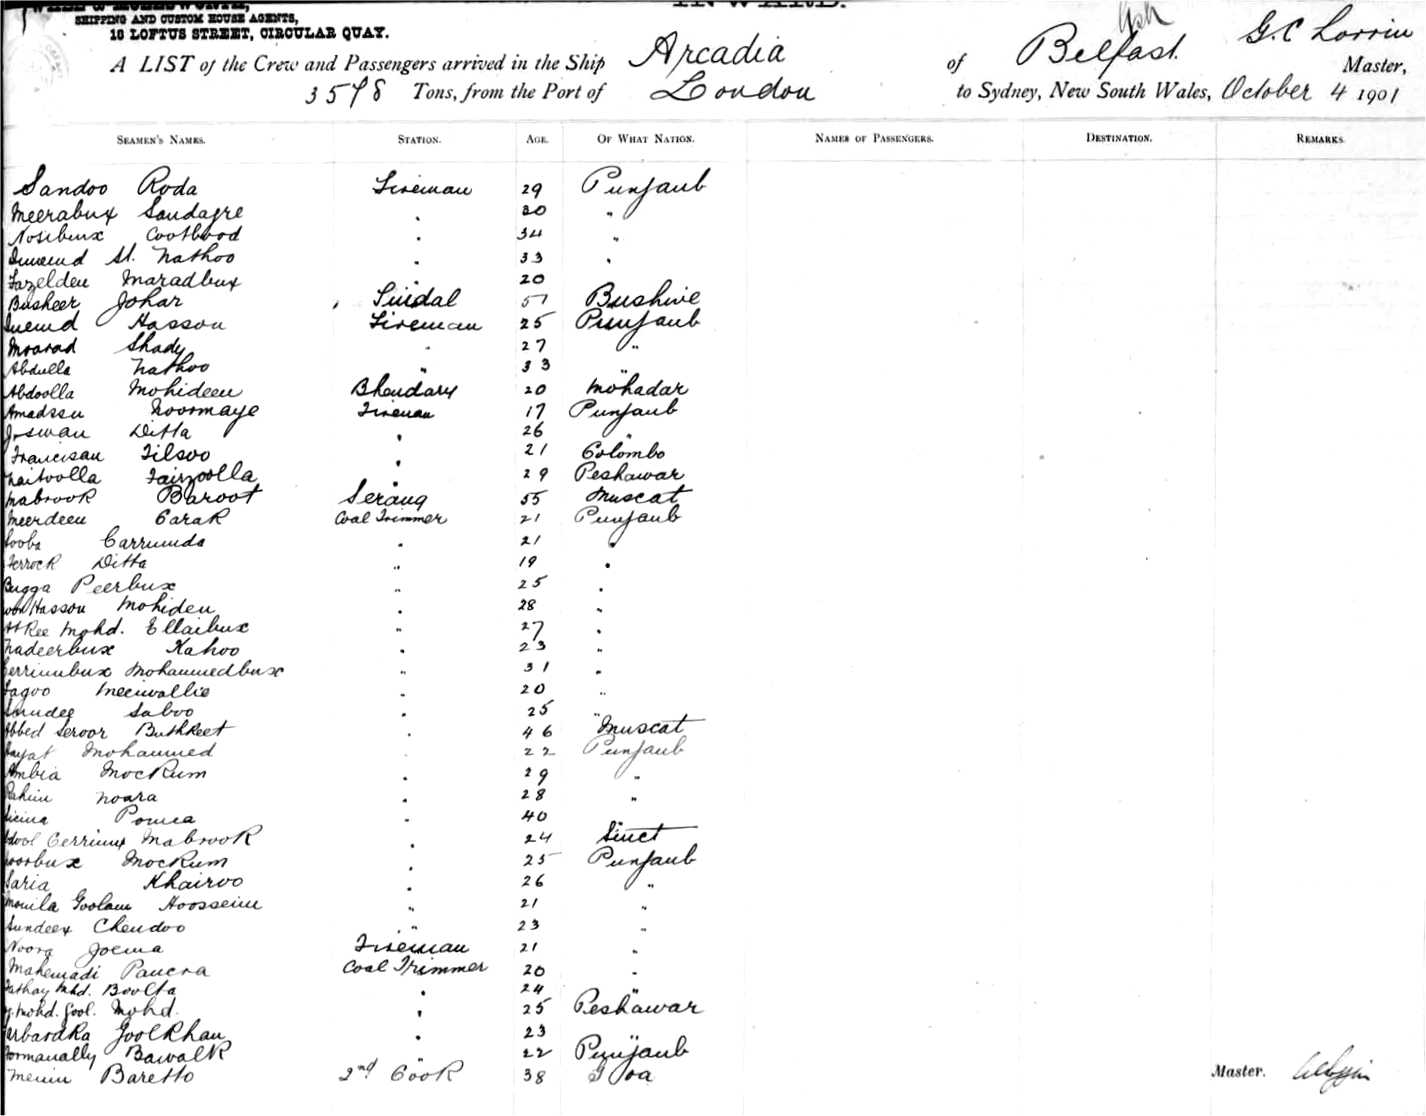 SHIPPING AND CUSTOM HOUSE AGENTS, INWARD.
10 LOFTUS STREET, CIRCULAR QUAY.
A LIST of the Crew and Passengers arrived in the Ship Arcadia of Belfast G.C Lorrin Master,
3578 Tons, from the Port of London to Sydney, New South Wales, October 4 1901
SEAMEN'S NAMES. STATION. AGE. OF WHAT NATION. NAMES OF PASSENGERS. DESTINATION. REMARKS.
Sandoo Roda Fireman 29 Punjaub
Meerabux Soudagre " 20 "
Nosibux Cootbood " 34 "
St. Nathoo " 33 "
Fazelden Maradbux " 20
Busheer Johar Tindal 57 Bushire
Hasson Fireman 25 Punjaub
Moorad Shady " 27 "
Abdulla Nathoo " 33 "
Abdoolla Mohideen Bhendary 20 Mohadar
Amadsen Noormaye Fireman 17 Punjaub
Ditta " 26 "
Francisan Tilsoo " 21 Colombo
Faizoolla " 29 Peshawar
Mabrook Baroot Serang 55 Muscat
Meerdeen Carak Coal Trimmer 21 Punjaub
Carrumda " 21 "
Ditta " 19 "
Bugga Peerbux " 25 "
Hasson Mohiden " 28 "
Mohd. Ellaibux " 27 "
Nadeerbux Kahoo " 23 "
Cerrimbux Mohammedbux " 31 "
Meerwallie " 20 "
Saboo " 25 "
Abbed Seroor Buthkeet " 46 Muscat
Mohammed " 22 Punjaub
Ambia Mockum " 29 "
Rahim Noora " 28 "
" 40
Cerrimx Mabrook " 24
Noorbux Mockum " 25 Punjaub
Khairoo " 26 "
Goolam Hoosseim " 21 "
Sundeex Chendoo " 23 "
Noora Joema Fireman 21 "
Mahemadi Coal Trimmer 20 "
Fathay Mhd. Boolta " 24 "
Mohd. Gool. Mohd. " 25 Peshawar
Goolkhan " 23 "
Bawalk " 22 Punjaub
Baretto 2nd Cook 38 Goa
Master.